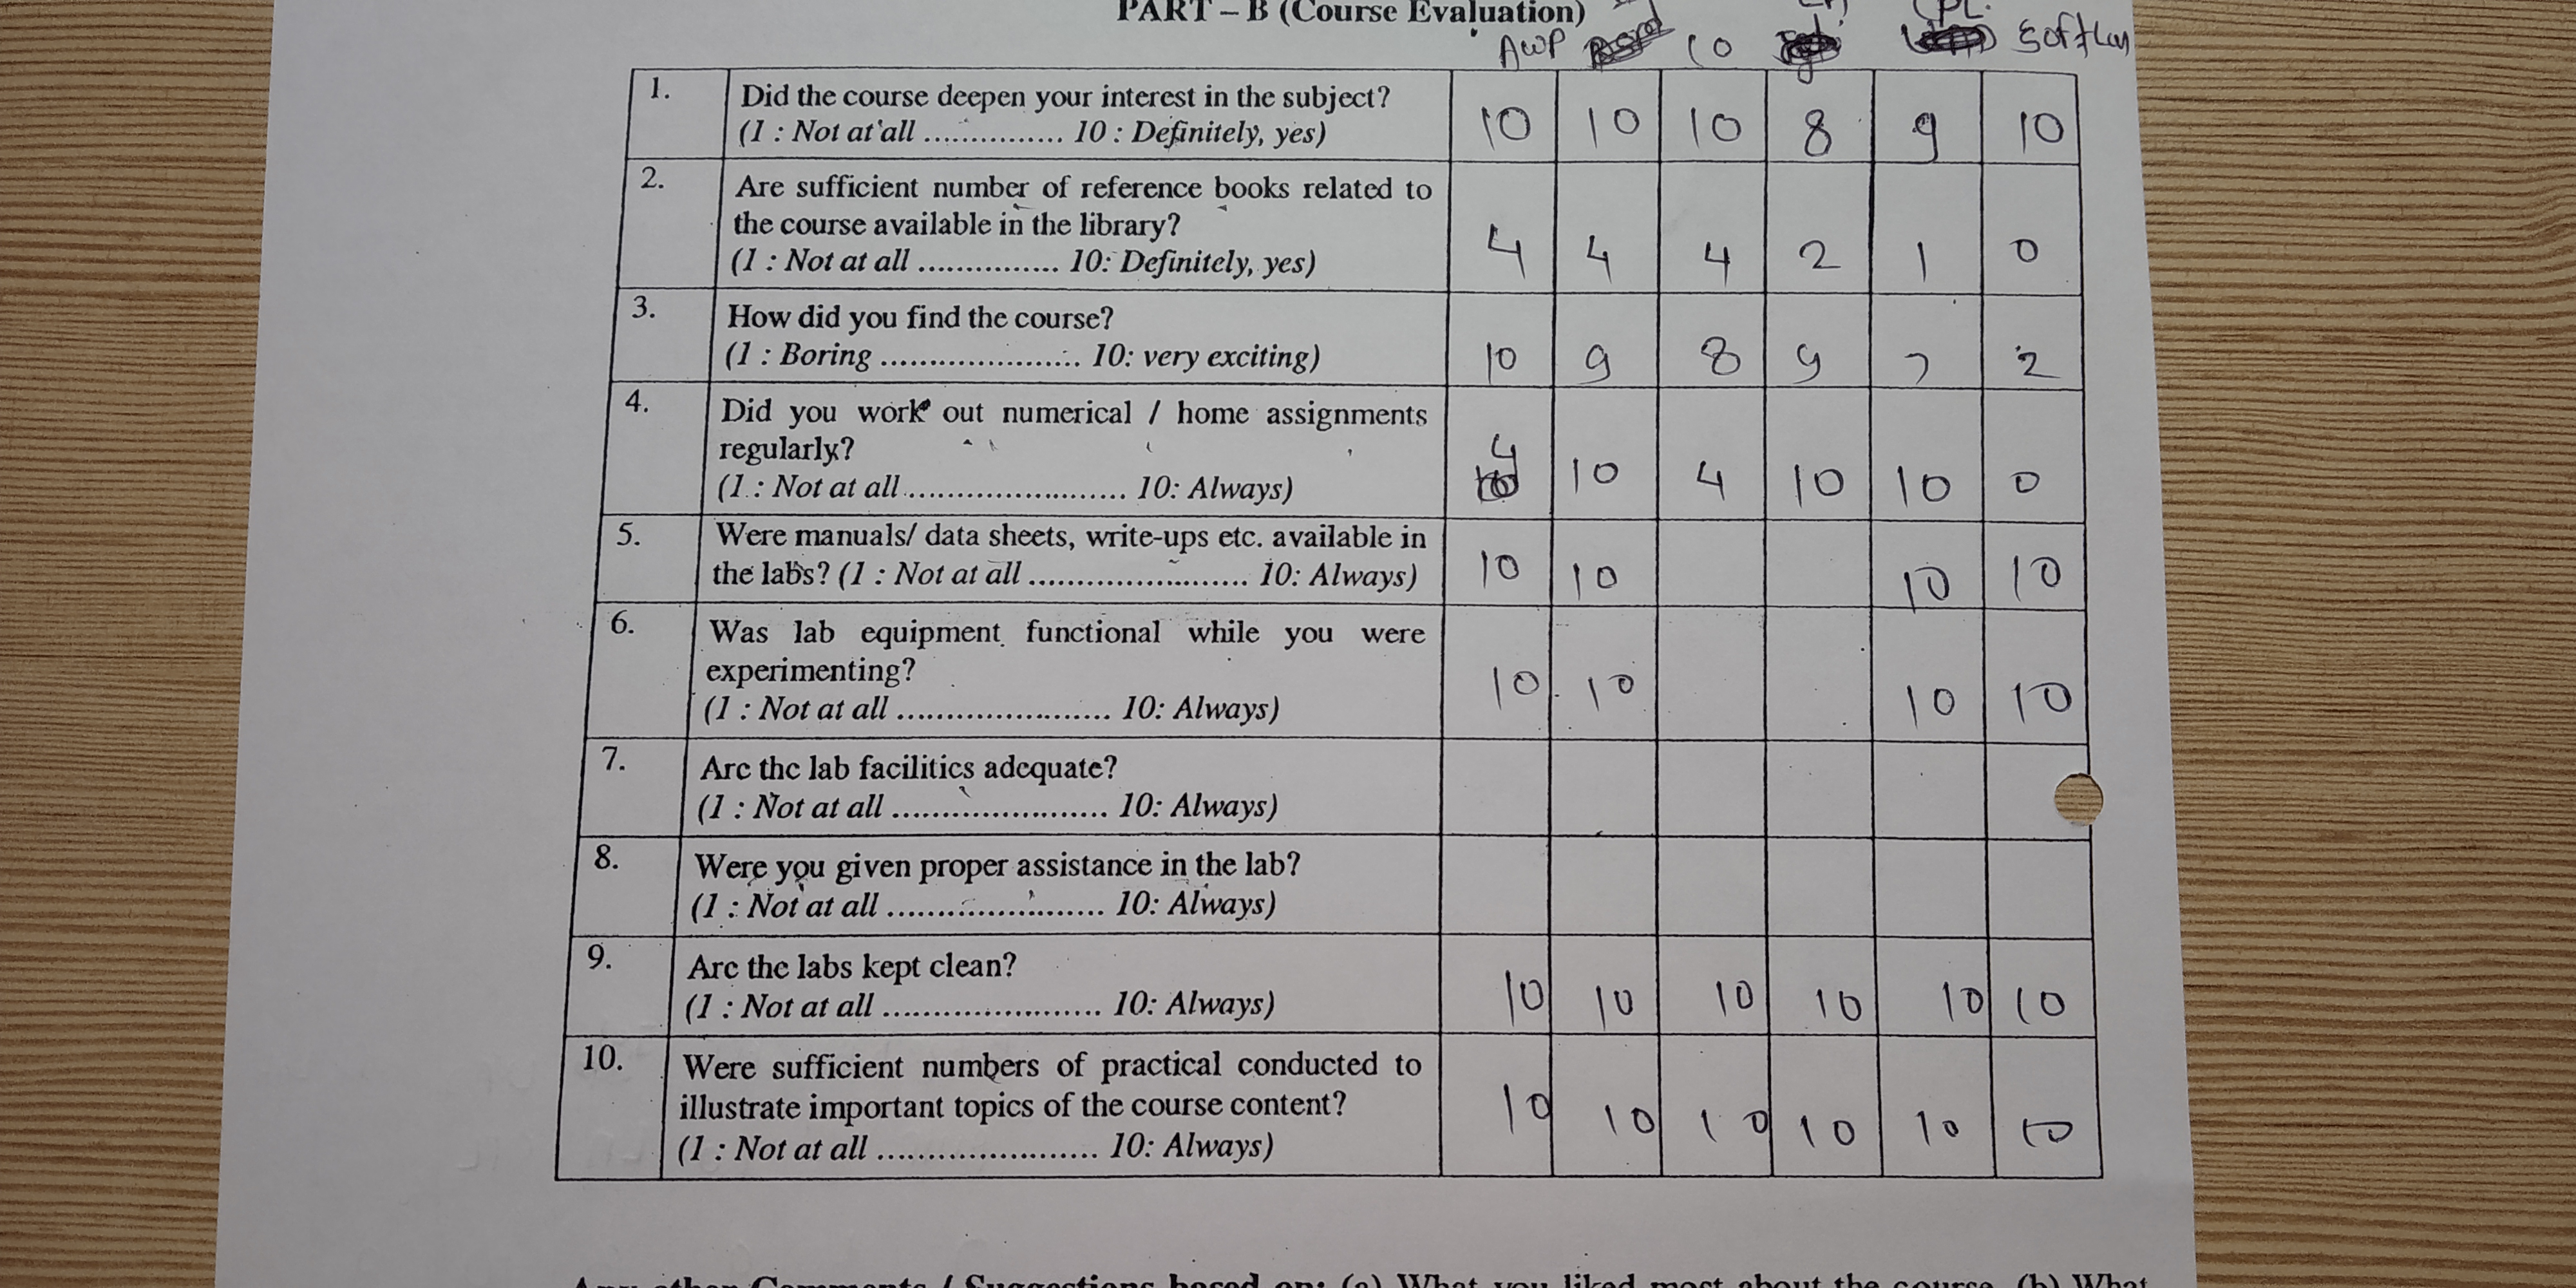 PART – B (Course Evaluation)
AWP 10 PL. Softlan
1. Did the course deepen your interest in the subject?
(1 : Not at all ............... 10 : Definitely, yes) 10 10 10 8 9 10
2. Are sufficient number of reference books related to
the course available in the library?
(1 : Not at all ............... 10: Definitely, yes) 4 4 4 2 1 0
3. How did you find the course?
(1 : Boring ...................... 10: very exciting) 10 9 8 9 7 2
4. Did you work out numerical / home assignments
regularly?
(1 : Not at all ........................ 10: Always) 4 10 4 10 10 0
5. Were manuals/ data sheets, write-ups etc. available in
the labs? (1 : Not at all ........................ 10: Always) 10 10 10 10
6. Was lab equipment functional while you were
experimenting?
(1 : Not at all ........................ 10: Always) 10 10 10 10
7. Are the lab facilities adequate?
(1 : Not at all ........................ 10: Always)
8. Were you given proper assistance in the lab?
(1 : Not at all ........................ 10: Always)
9. Are the labs kept clean?
(1 : Not at all ........................ 10: Always) 10 10 10 10 10 10
10. Were sufficient numbers of practical conducted to
illustrate important topics of the course content?
(1 : Not at all ........................ 10: Always) 10 10 10 10 10 10
Any other Comments / Suggestions based on: (a) What you liked most about the course, (b) What